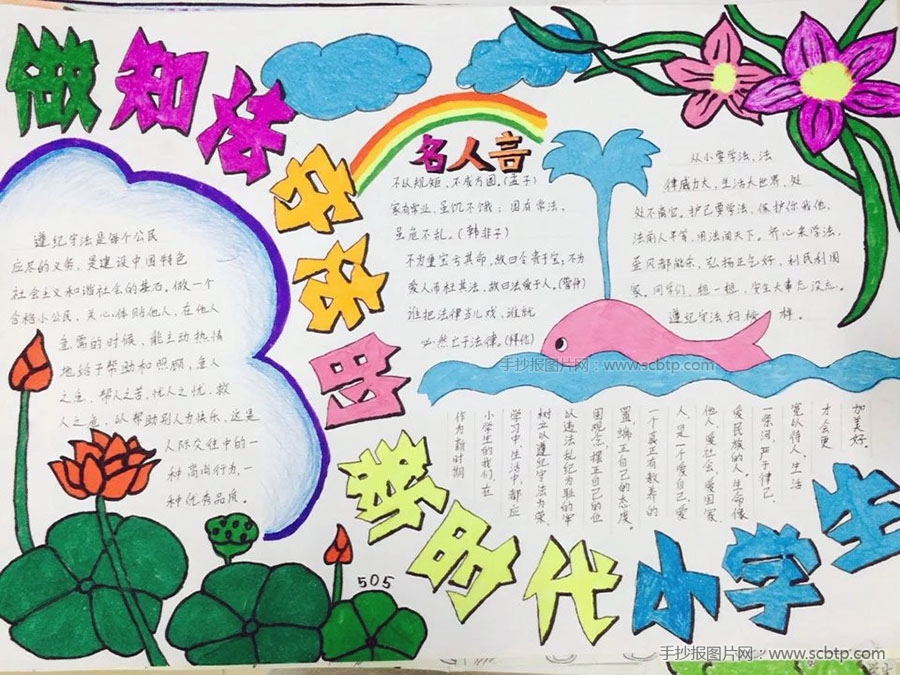 做知法守法的新时代小学生
遵纪守法是每个公民
应尽的义务，是建设中国特色
社会主义和谐社会的基石。做一个
合格小公民，关心体贴他人，在他人
急需的时候，能主动热情
地给予帮助和照顾，急人
之急，帮人之苦，忧人之忧，救
人之危，以帮助别人为快乐，这是
人际交往中的一
种高尚行为，一
种优秀品质。
名人言
不以规矩，不成方圆。(孟子)
家有常业，虽饥不饿；国有常法，
虽危不乱。(韩非子)
不为重宝亏其命，故曰令贵于宝；不为
爱人而枉其法，故曰法爱于人。(管仲)
谁把法律当儿戏，谁就
必然亡于法律。(拜伦)
从小要学法，法
律威力大，生活大世界，处
处不离它。护己要学法，保护你我他，
法前人平等，用法闯天下。齐心来学法，
歪风都能杀，弘扬正气好，利民利国
家。同学们，想一想，安全大事怎没怎。
遵纪守法好榜样。
作为新时期
小学生的我们，在
学习中，生活中，都应
树立以遵纪守法为荣、
以违法乱纪为耻的牢
固观念，摆正自己的位
置，端正自己的态度。
一个真正有教养的
人，是一个爱自己，爱
他人，爱社会，爱国家，
爱民族的人。生命像
一条河，严于律己，
宽以待人，生活
才会更
加美好。
505
手抄报图片网：www.scbtp.com
手抄报图片网：www.scbtp.com